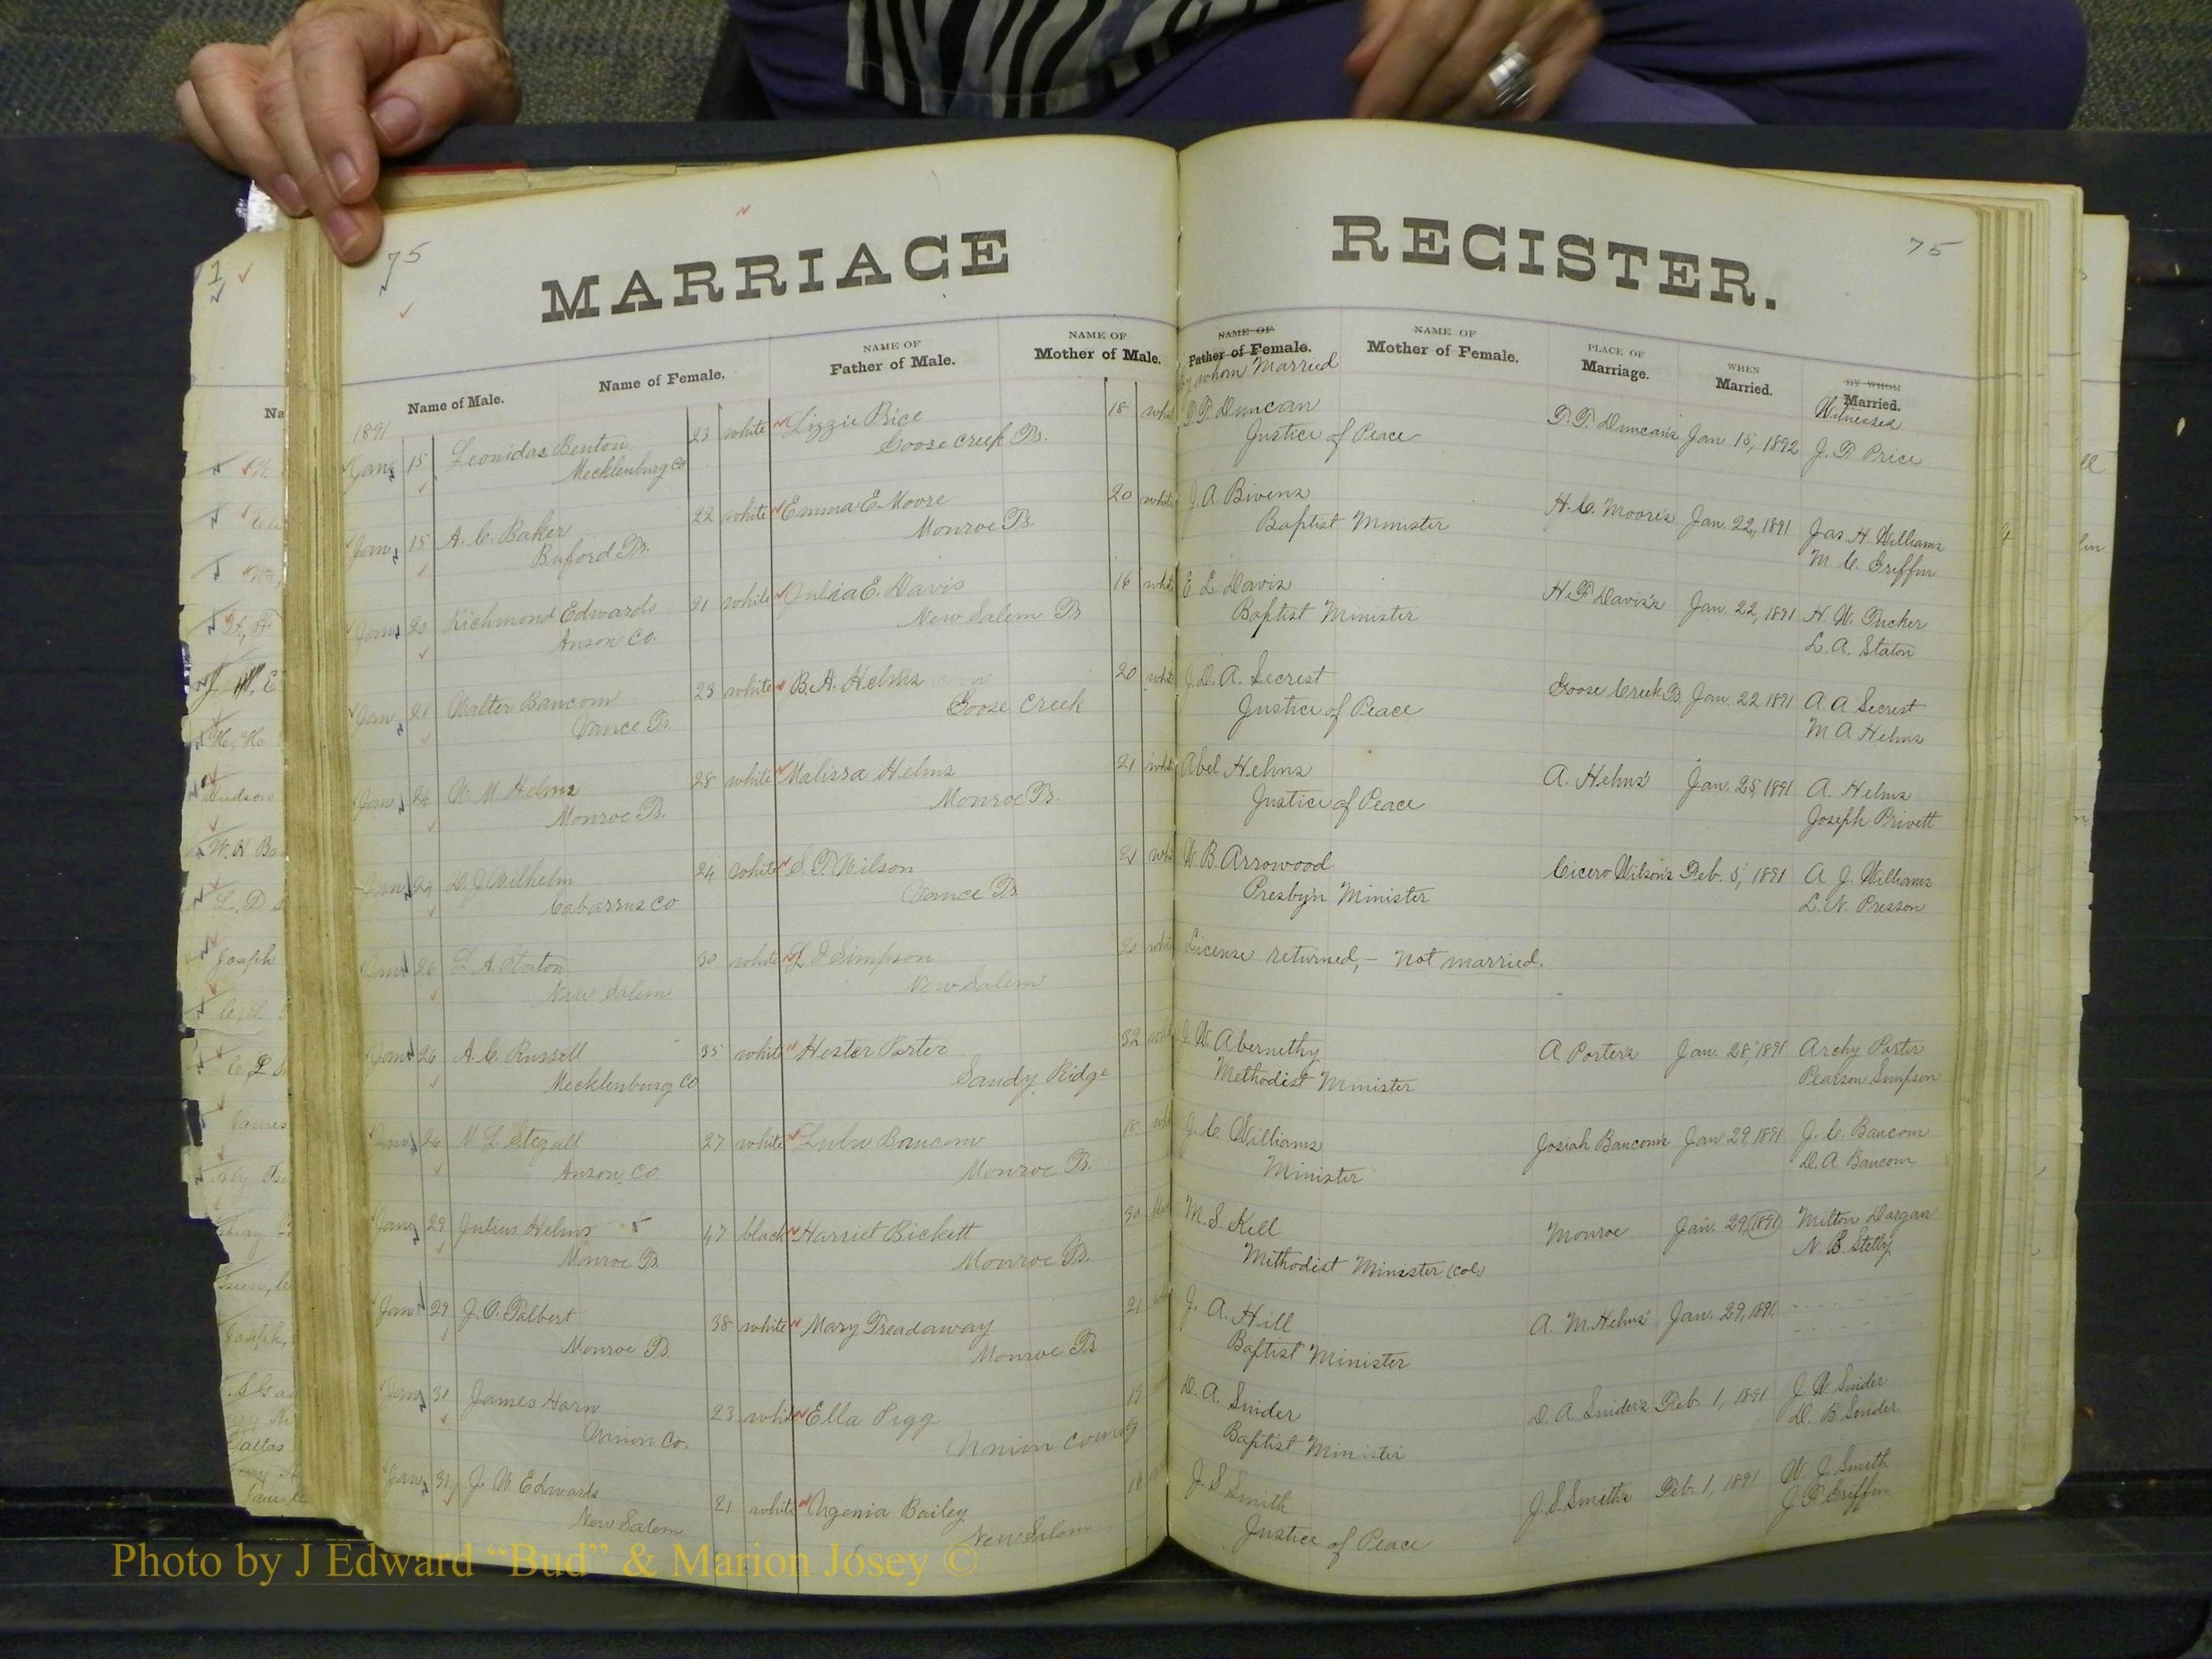 75
MARRIAGE
REGISTER.
75
Name of Male.
Name of Female.
NAME OF
Father of Male.
NAME OF
Mother of Male.
NAME OF
Father of Female.
by whom Married
NAME OF
Mother of Female.
PLACE OF
Marriage.
WHEN
Married.
BY WHOM
Married.
Witnesses
1891
Jany 15 Leonidas Benton 23 white Lizzie Price 18 white
Mecklenburg Co Goose Creek Tp.
T. F. Duncan T. F. Duncan's Jan 15, 1892 J. P. Price
Justice of Peace
Jany 15 A. C. Baker 22 white Emma E Moore 20 white
Buford Tp. Monroe Tp.
J. A. Bivens H. C. Moore's Jan. 22, 1891 Jas. H. Williams
Baptist Minister M. C. Griffin
Jany 20 Richmond Edwards 21 white Julia E. Davis 16 white
Anson Co. New Salem Tp
E. L. Davis Jan. 22, 1891 H. W. Tucker
Baptist Minister L. A. Staton
Jany 21 Walter Baucom 23 white B. A. Helms 20 white
Vance Tp. Goose Creek
J. D. A. Secrest Goose Creek Tp Jan. 22 1891 A. A Secrest
Justice of Peace M A Helms
Jany 24 W. M Helms 28 white Malissa Helms 21 white
Monroe Tp. Monroe Tp.
Abel Helms A. Helms' Jan. 25, 1891 A. Helms
Justice of Peace Joseph Privett
Jany 24 D. J Wilhelm 24 white S. T. Wilson 21 white
Cabarrus Co Vance Tp
W. B. Arrowood Cicero Wilson's Feb. 5, 1891 A J. Williams
Presbyn Minister L. N. Presson
Jany 26 L. A. Staton 30 white Simpson 20 white
New Salem New Salem
License returned,- not married.
Jany 26 A. C. Russell 35 white Hester Porter 32 white
Mecklenburg Co Sandy Ridge
J. W. Abernethy A Porter's Jan. 28, 1891 Archy Porter
Methodist Minister Pearson Simpson
Jany 26 Stegall 27 white Lula Baucom 18 white
Anson Co. Monroe Tp.
J. C. Williams Josiah Baucom's Jan 29 1891 J. C. Baucom
Minister D. A Baucom
Jany 29 Julius Helms 47 black Harriet Bickett 30
Monroe Tp. Monroe Tp.
M. S. Kell Monroe Jan. 29, 1891 Milton Dargan
Methodist Minister (Col)
Jany 29 J. O. Talbert 38 white Mary Treadaway 21
Monroe Tp. Monroe Tp
J. A. Hill A. M. Helms' Jan. 29, 1891
Baptist Minister
Jany 31 James Horn 23 white Ella Pigg 19
Union Co. Union County
D. A. Snider D. A. Snider's Feb. 1, 1891 J. W. Snider
Baptist Minister D. B Snider
Jany 31 J. W. Edwards 21 white Ugenia Bailey
New Salem New Salem
J. S Smith J. S. Smith's Feb. 1, 1891 W. J. Smith
Justice of Peace Griffin
Photo by J Edward “Bud” & Marion Josey ©